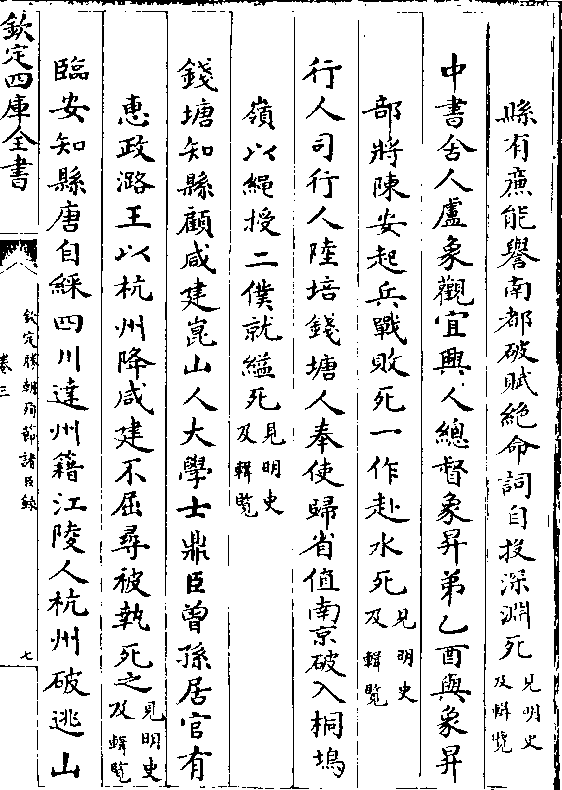 縣有廉能譽南都破賦絶命詞自投深淵死見明史及輯覽
中書舍人盧象觀宜興人總督象昇弟乙酉與象昇
部將陳安起兵戰敗死一作赴水死見明史及輯覽
行人司行人陸培錢塘人奉使歸省值南京破入桐塢
嶺以繩授二僕就縊死見明史及輯覽
錢塘知縣顧咸建崑山人大學士鼎臣曾孫居官有
惠政潞王以杭州降咸建不屈尋被執死之見明史及輯覽
臨安知縣唐自綵四川達州籍江陵人杭州破逃山
欽定四庫全書
欽定勝朝殉節諸臣錄
卷三
七